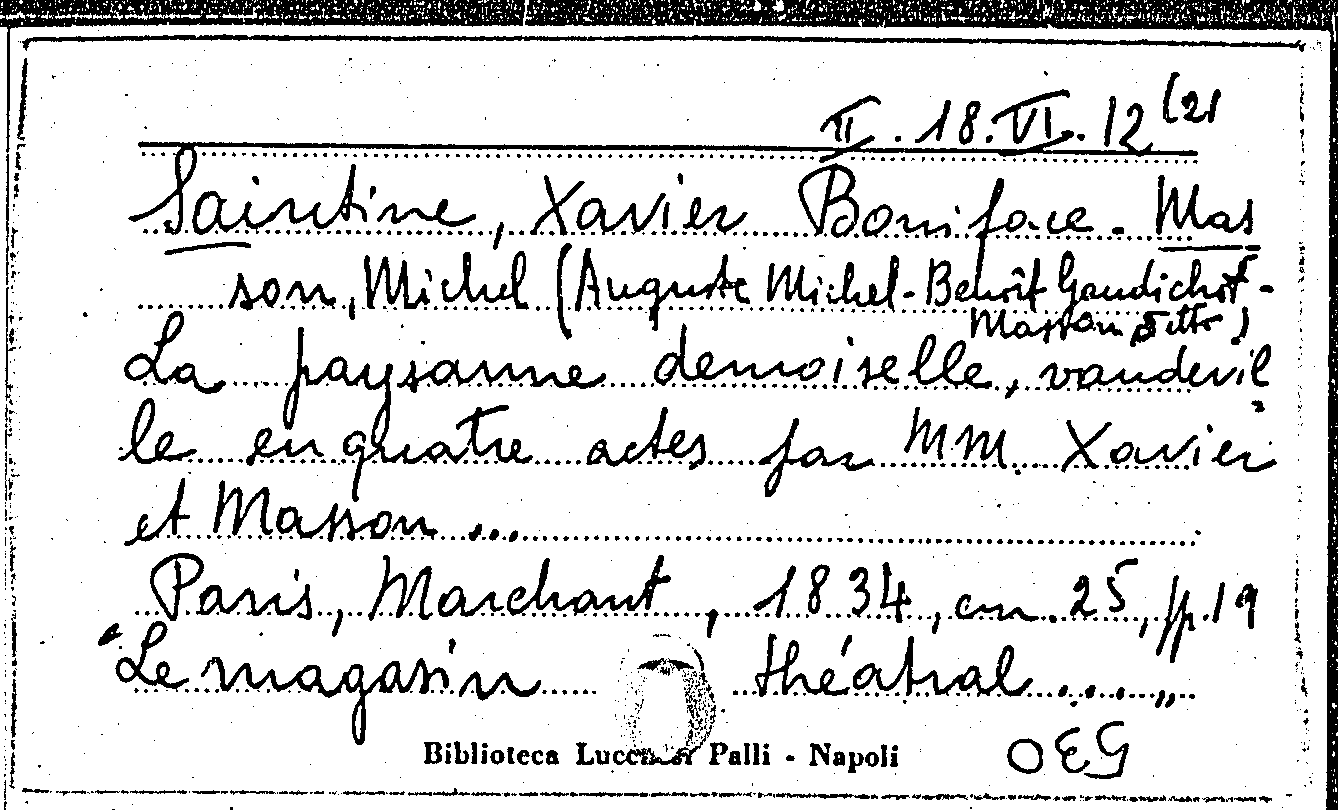 II. 18. VI. 12 (21
Saintine, Xavier Boniface. Mas
son, Michel (Auguste Michel-Benoît Gaudichot-
Masson, detto)
La paysanne demoiselle, vaudevil
le en quatre actes par MM. Xavier
et Masson ...
Paris, Marchant, 1834, cm. 25, pp. 19
"Le magasin théatral ...."
Biblioteca Lucchesi Palli - Napoli